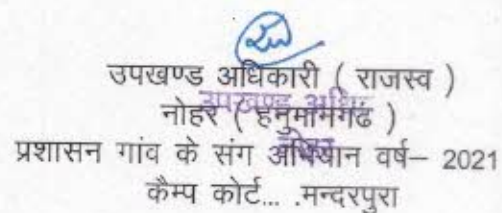 उपखण्ड अधिकारी ( राजस्व )
नोहर ( हनुमानगढ )
प्रशासन गांव के संग अभियान वर्ष– 2021
कैम्प कोर्ट... .मन्दरपुरा